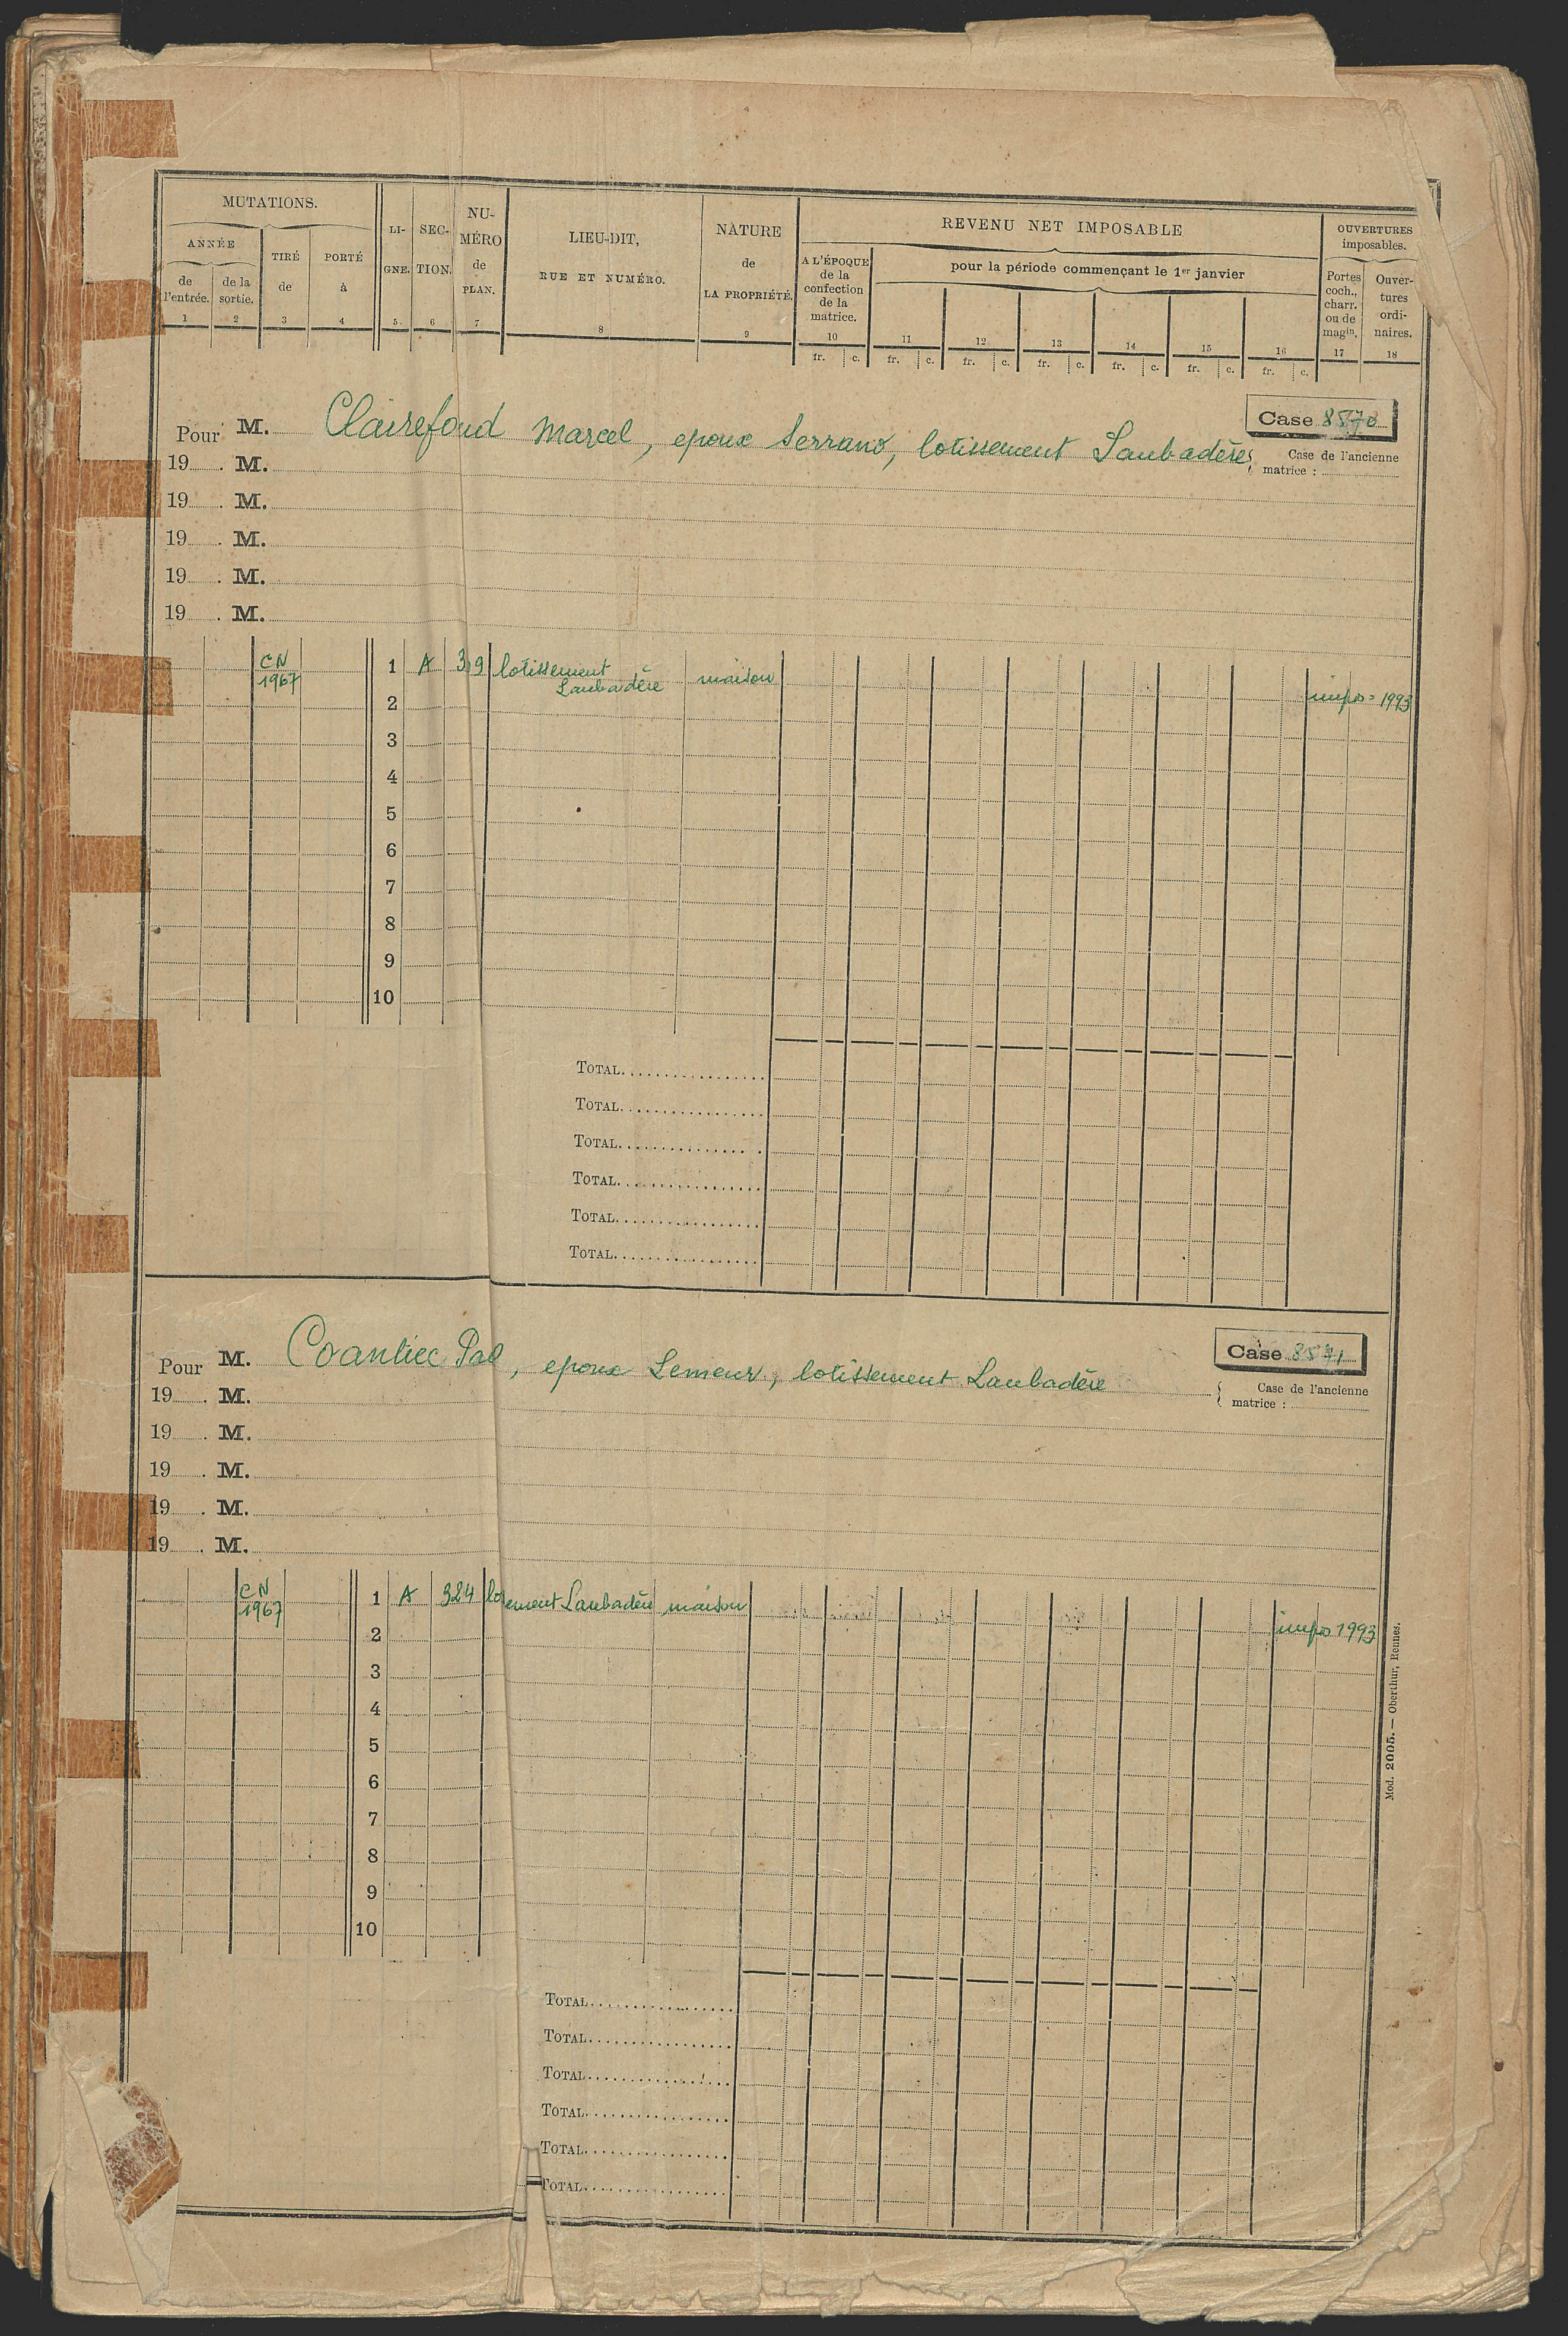 MUTATIONS.
ANNÉE
de l'entrée.
de la sortie.
TIRÉ de
PORTÉ à
LI-GNE.
SEC-TION.
NU-MÉRO de PLAN.
LIEU-DIT,
RUE ET NUMÉRO.
NATURE
de
LA PROPRIÉTÉ.
REVENU NET IMPOSABLE
A L'ÉPOQUE
de la
confection
de la
matrice.
pour la période commençant le 1er janvier
OUVERTURES
imposables.
Portes
coch.,
charr.
ou de
magin.
Ouver-
tures
ordi-
naires.
1 2 3 4 5 6 7 8 9 10 11 12 13 14 15 16 17 18
fr. c. fr. c. fr. c. fr. c. fr. c. fr. c. fr. c.
Case 8570
Pour M. Clairefond Marcel, epoux Serrano, lotissement Laubadère
Case de l'ancienne
matrice :
19 . M.
19 . M.
19 . M.
19 . M.
19 . M.
CN
1967
1 A lotissement
Laubadère
maison
impos = 1993
2
3
4
5
6
7
8
9
10
TOTAL
TOTAL
TOTAL
TOTAL
TOTAL
TOTAL
Case 8571
Pour M. , epoux Lemeur, lotissement Laubadère
Case de l'ancienne
matrice :
19 . M.
19 . M.
19 . M.
19 . M.
19 . M.
CN
1967
1 A 324 Laubadère maison
impos 1993
2
3
4
5
6
7
8
9
10
TOTAL
TOTAL
TOTAL
TOTAL
TOTAL
TOTAL
Mod. 2005. — Oberthur, Rennes.